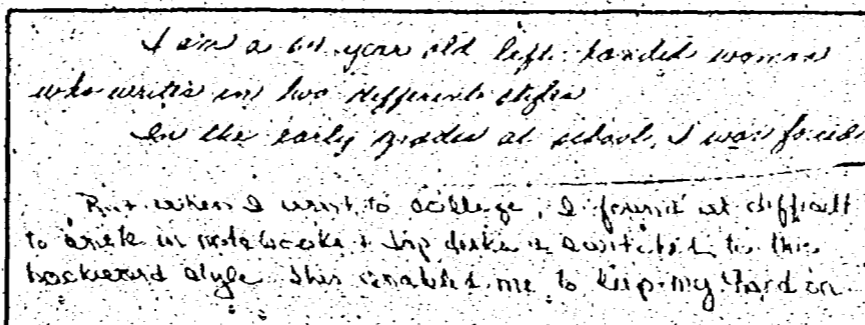 I am a 64 year old left-handed woman
who writes in two different styles
In the early grades at school, I was forced
But when I went to college, I found it difficult
to write in notebooks + lap desks & switched to this
backward style. This enabled me to keep my hand on